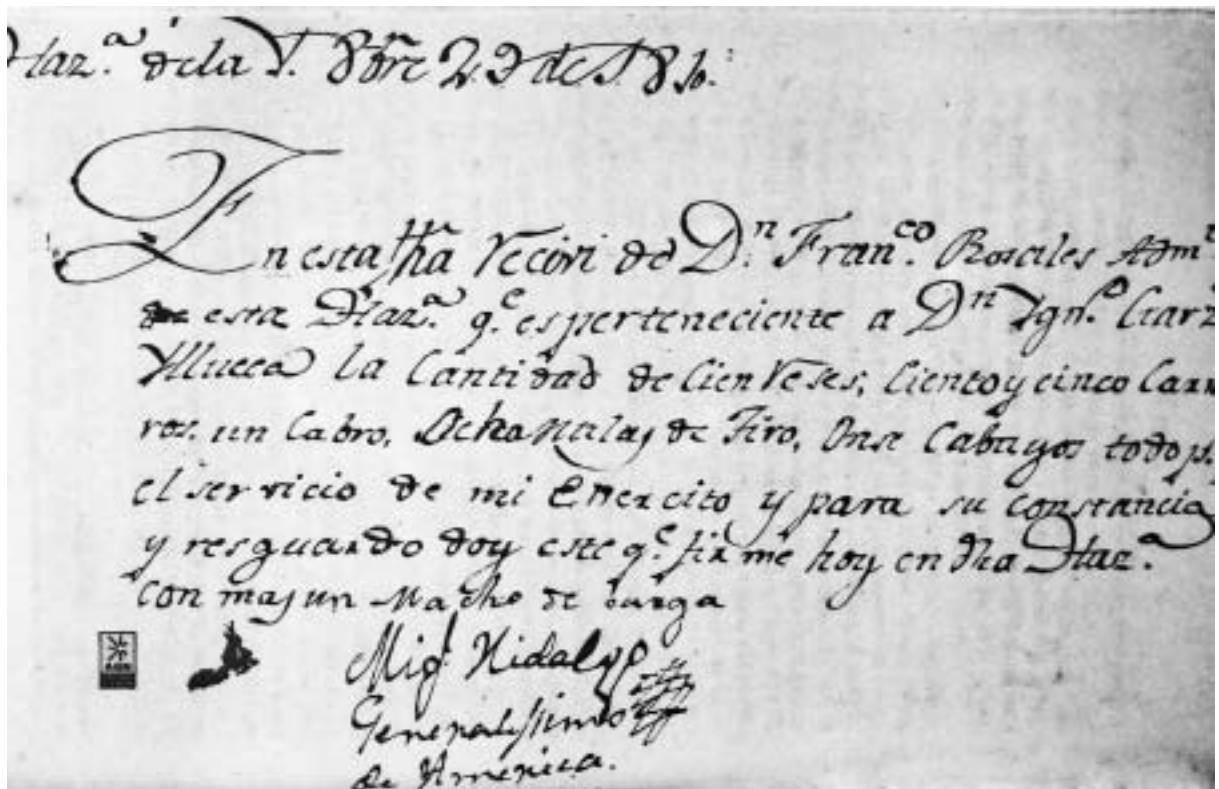 Haz.ª de la J. 8bre 29 de 1810.
En esta fha recivi de D.n Fran.co Rosiles Adm.r
de esta Haz.ª q.e es perteneciente a D.n Ygn.o Garz
Yllueca la Cantidad de Cien Reses, Ciento y cinco Carne
ros. un Cabro, Ocho Mulas de Tiro, Onse Cabayos todo p.
el servicio de mi Exercito y para su constancia
y resguardo doy este q.e firme hoy en dha Haz.ª
con mas un Macho de carga
Mig.l Hidalgo
Generalissimo
de America.